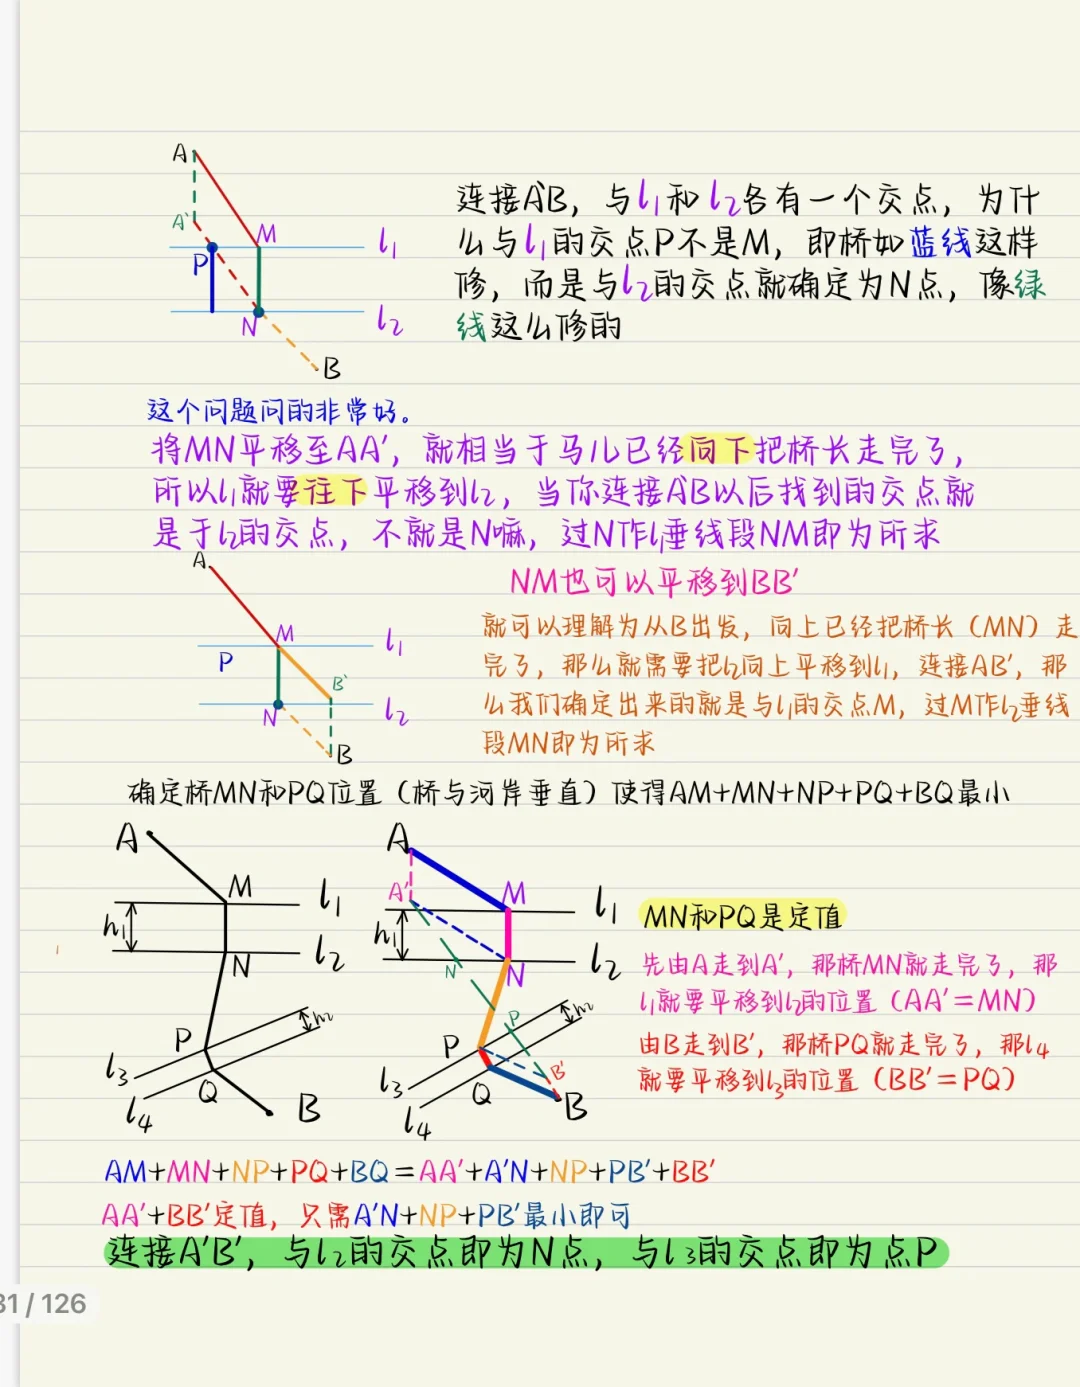 A
A'
M
l₁
P
N
l₂
B
连接A'B，与l₁和l₂各有一个交点，为什
么与l₁的交点P不是M，即桥如蓝线这样
修，而是与l₂的交点就确定为N点，像绿
线这么修的
这个问题问的非常好。
将MN平移至AA'，就相当于马儿已经向下把桥长走完了，
所以l₁就要往下平移到l₂，当你连接A'B以后找到的交点就
是于l₂的交点，不就是N嘛，过N作l₁垂线段NM即为所求
A
M
l₁
P
B'
N
l₂
B
NM也可以平移到BB'
就可以理解为从B出发，向上已经把桥长（MN）走
完了，那么就需要把l₂向上平移到l₁，连接AB'，那
么我们确定出来的就是与l₁的交点M，过M作l₂垂线
段MN即为所求
确定桥MN和PQ位置（桥与河岸垂直）使得AM+MN+NP+PQ+BQ最小
A
M
l₁
h₁
N
l₂
P
h₂
l₃
Q
B
l₄
A
A'
M
l₁
h₁
N
N
l₂
P
P
h₂
l₃
B'
Q
B
l₄
MN和PQ是定值
先由A走到A'，那桥MN就走完了，那
l₁就要平移到l₂的位置（AA'=MN）
由B走到B'，那桥PQ就走完了，那l₄
就要平移到l₃的位置（BB'=PQ）
AM+MN+NP+PQ+BQ=AA'+A'N+NP+PB'+BB'
AA'+BB'定值，只需A'N+NP+PB'最小即可
连接A'B'，与l₂的交点即为N点，与l₃的交点即为点P
31 / 126